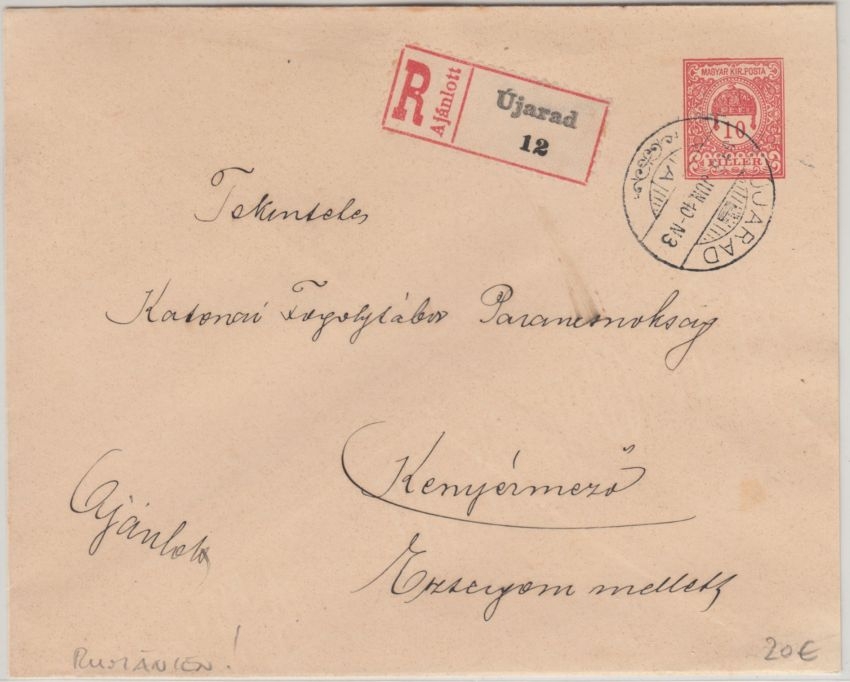 MAGYAR KIR. POSTA
10
FILLÉR
R
Ajánlott
Újarad
12
ÚJARAD
JUN 10-N3
A
Tekintetes
Katonai Fogolytábor Parancsnokság
Kenyérmező
Esztergom mellett
Ajánlott
RUMÄNIEN!
20€